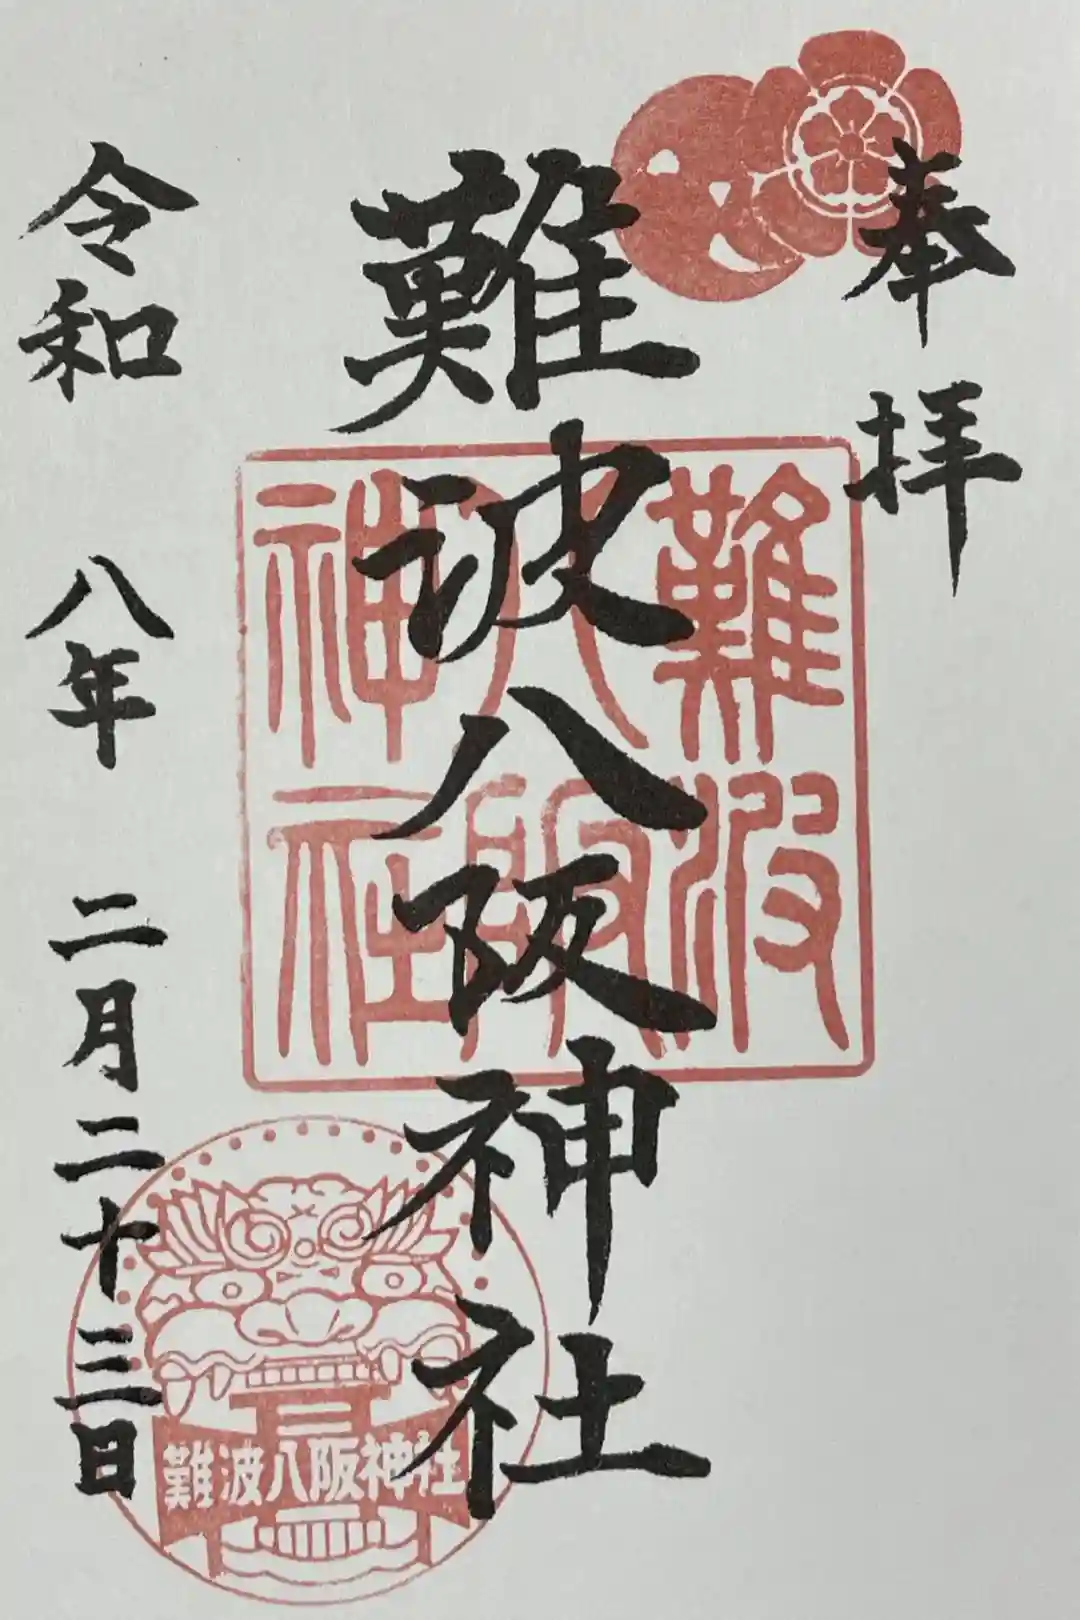 奉拝
難波八阪神社
令和八年二月二十三日
難波
八阪
神社
難波八阪神社